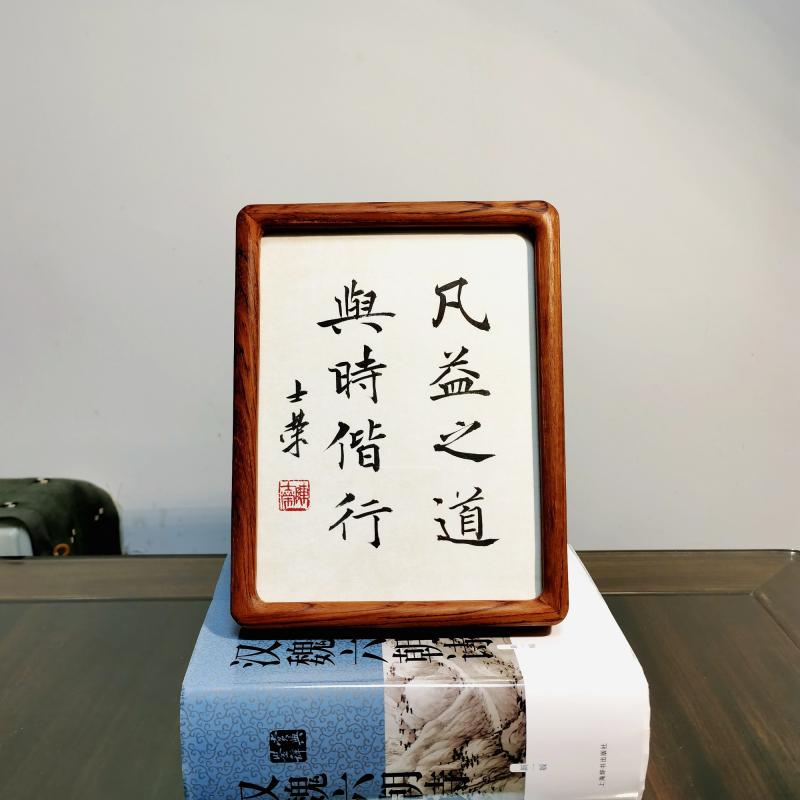 凡益之道
與時偕行
士榮
汉魏六朝
汉魏六朝
上海辞书出版社